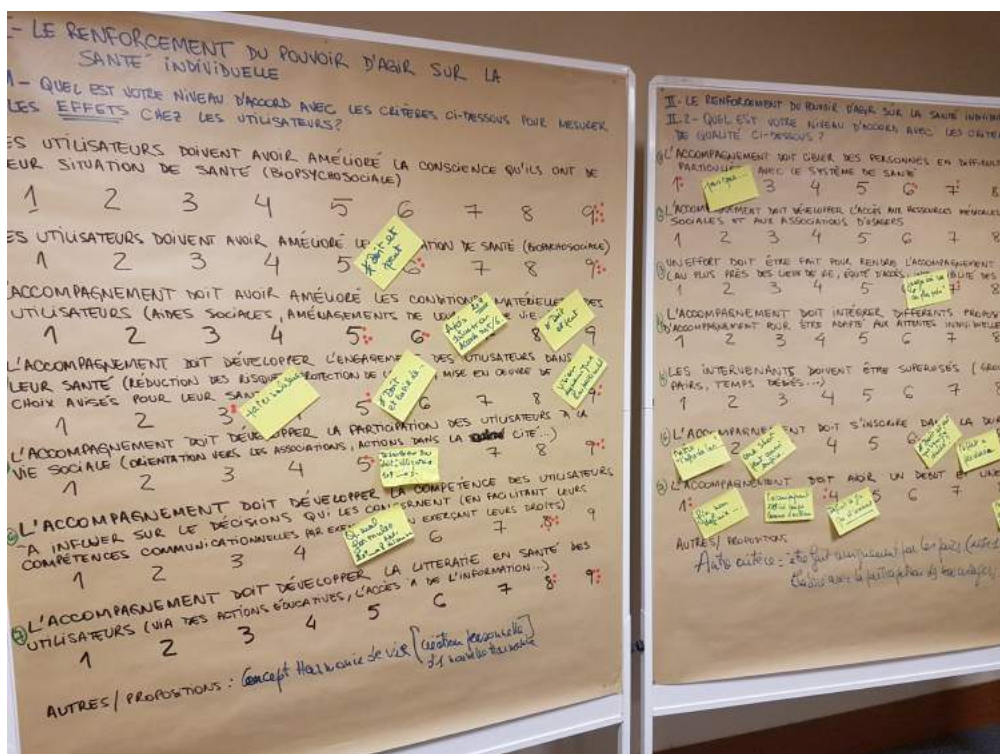 - LE RENFORCEMENT DU POUVOIR D'AGIR SUR LA
SANTÉ INDIVIDUELLE
1- QUEL EST VOTRE NIVEAU D'ACCORD AVEC LES CRITÈRES CI-DESSOUS POUR MESURER
LES EFFETS CHEZ LES UTILISATEURS?
ES UTILISATEURS DOIVENT AVOIR AMÉLIORÉ LA CONSCIENCE QU'ILS ONT DE
EUR SITUATION DE SANTÉ (BIOPSYCHOSOCIALE)
1 2 3 4 5 6 7 8 9
ES UTILISATEURS DOIVENT AVOIR AMÉLIORÉ LE ATION DE SANTÉ (BIOPSYCHOSOCIALE)
1 2 3 4 5 6 7 8 9
# doit et
peut
L'ACCOMPAGNEMENT DOIT AVOIR AMÉLIORÉ LES CONDITIONS MATÉRIELLES DES
UTILISATEURS (AIDES SOCIALES, AMÉNAGEMENTS DE VIE
1 2 3 4 5 6 8 9
# doit
et peut
L'ACCOMPAGNEMENT DOIT DÉVELOPPER L'ENGAGEMENT DES UTILISATEURS DANS
LEUR SANTÉ (RÉDUCTION DES RISQUES PROTECTION DE MISE EN OEUVRE DE
CHOIX AVISÉS POUR LEUR SAN
1 2 3 5 6 7 8 9
# Doit
L'ACCOMPAGNEMENT DOIT DÉVELOPPER LA PARTICIPATION DES UTILISATEURS À LA
VIE SOCIALE (ORIENTATION VERS LES ASSOCIATIONS, ACTIONS DANS LA CITÉ...)
1 2 3 4 5 7 8 9
L'ACCOMPAGNEMENT DOIT DÉVELOPPER LA COMPÉTENCE DES UTILISATEURS
À INFLUER SUR LE DÉCISIONS QUI LES CONCERNENT (EN FACILITANT LEURS
COMPÉTENCES COMMUNICATIONNELLES PAR EXE EN EXERÇANT LEURS DROITS)
1 2 3 4 6 7 8 9
Qu mal
formulée
7 L'ACCOMPAGNEMENT DOIT DÉVELOPPER LA LITTERATIE EN SANTÉ DES
UTILISATEURS (VIA DES ACTIONS ÉDUCATIVES, L'ACCÈS À DE L'INFORMATION...)
1 2 3 4 5 6 7 8 9
AUTRES/PROPOSITIONS : Concept Harmonie de vie [création personnelle
II- LE RENFORCEMENT DU POUVOIR D'AGIR SUR LA SANTÉ INDIVID
II.2- QUEL EST VOTRE NIVEAU D'ACCORD AVEC LES CRITÈR
DE QUALITÉ CI-DESSOUS ?
L'ACCOMPAGNEMENT DOIT CIBLER DES PERSONNES EN DIFFICUL
PARTICUL AVEC LE SYSTÈME DE SANTÉ
1 3 4 5 6 7 8
L'ACCOMPAGNEMENT DOIT DÉVELOPPER L'ACCÈS AUX RESSOURCES MÉDICALES
SOCIALES ET AUX ASSOCIATIONS D'USAGERS
1 2 3 4 5 6 7 8
UN EFFORT DOIT ÊTRE FAIT POUR RENDRE L'ACCOMPAGNEMENT
(AU PLUS PRÈS DES LIEUX DE VIE, ÉQUITÉ D'ACCÈS, BILITÉ DES
1 2 3 4 5 7 8
L'ACCOMPAGNEMENT DOIT INTÉGRER DIFFÉRENTS PROPOS
D'ACCOMPAGNEMENT POUR ÊTRE ADAPTÉ AUX ATTENTES INDIVIDUELLES
1 2 3 4 5 6 7 8
LES INTERVENANTS DOIVENT ÊTRE SUPERVISÉS (GROU
PAIRS, TEMPS DÉDIÉS...)
1 2 3 4 5 6 7
L'ACCOMPAGNEMENT DOIT S'INSCRIRE DANS LA DU
2 4 5 6
L'ACCOMPAGNEMENT DOIT AVOIR UN DÉBUT ET UNE
4 5 6 7
AUTRES/PROPOSITIONS
Autre critère : être fait uniquement par les pairs